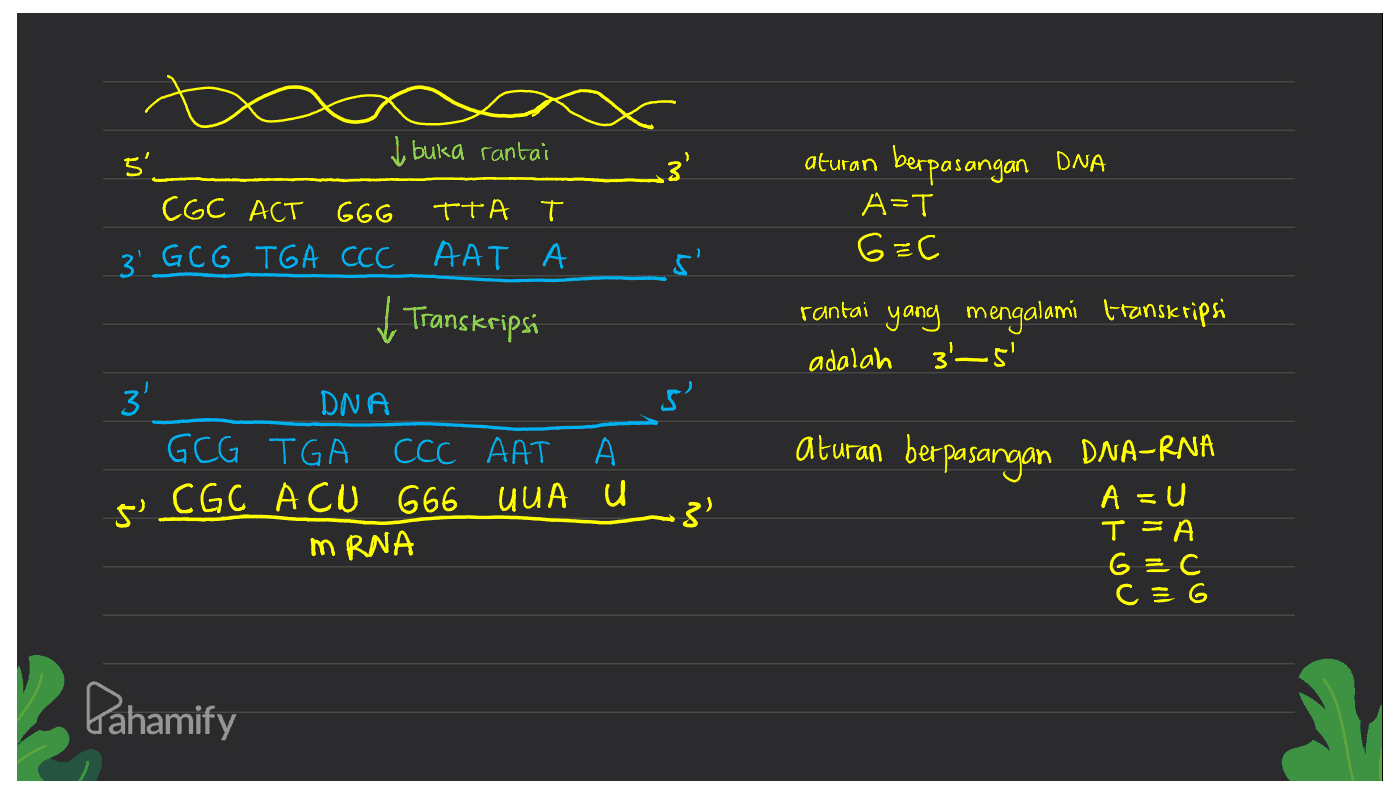 ↓ buka rantai
5' 3'
CGC ACT GGG TTA T
3' GCG TGA CCC AAT A 5'
↓ Transkripsi
3' DNA 5'
GCG TGA CCC AAT A
5' CGC ACU GGG UUA U 3'
mRNA
aturan berpasangan DNA
A=T
G≡C
rantai yang mengalami transkripsi
adalah 3'—5'
aturan berpasangan DNA-RNA
A = U
T = A
G ≡ C
C ≡ G
Pahamify